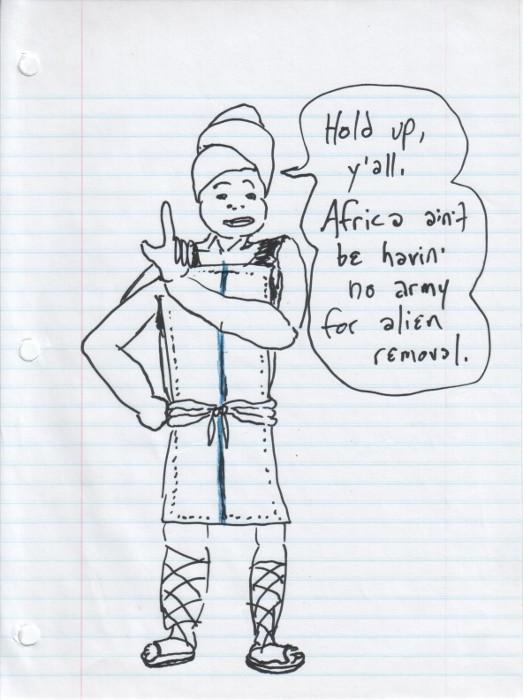 Hold up,
y'all.
Africa ain't
be havin'
no army
for alien
removal.